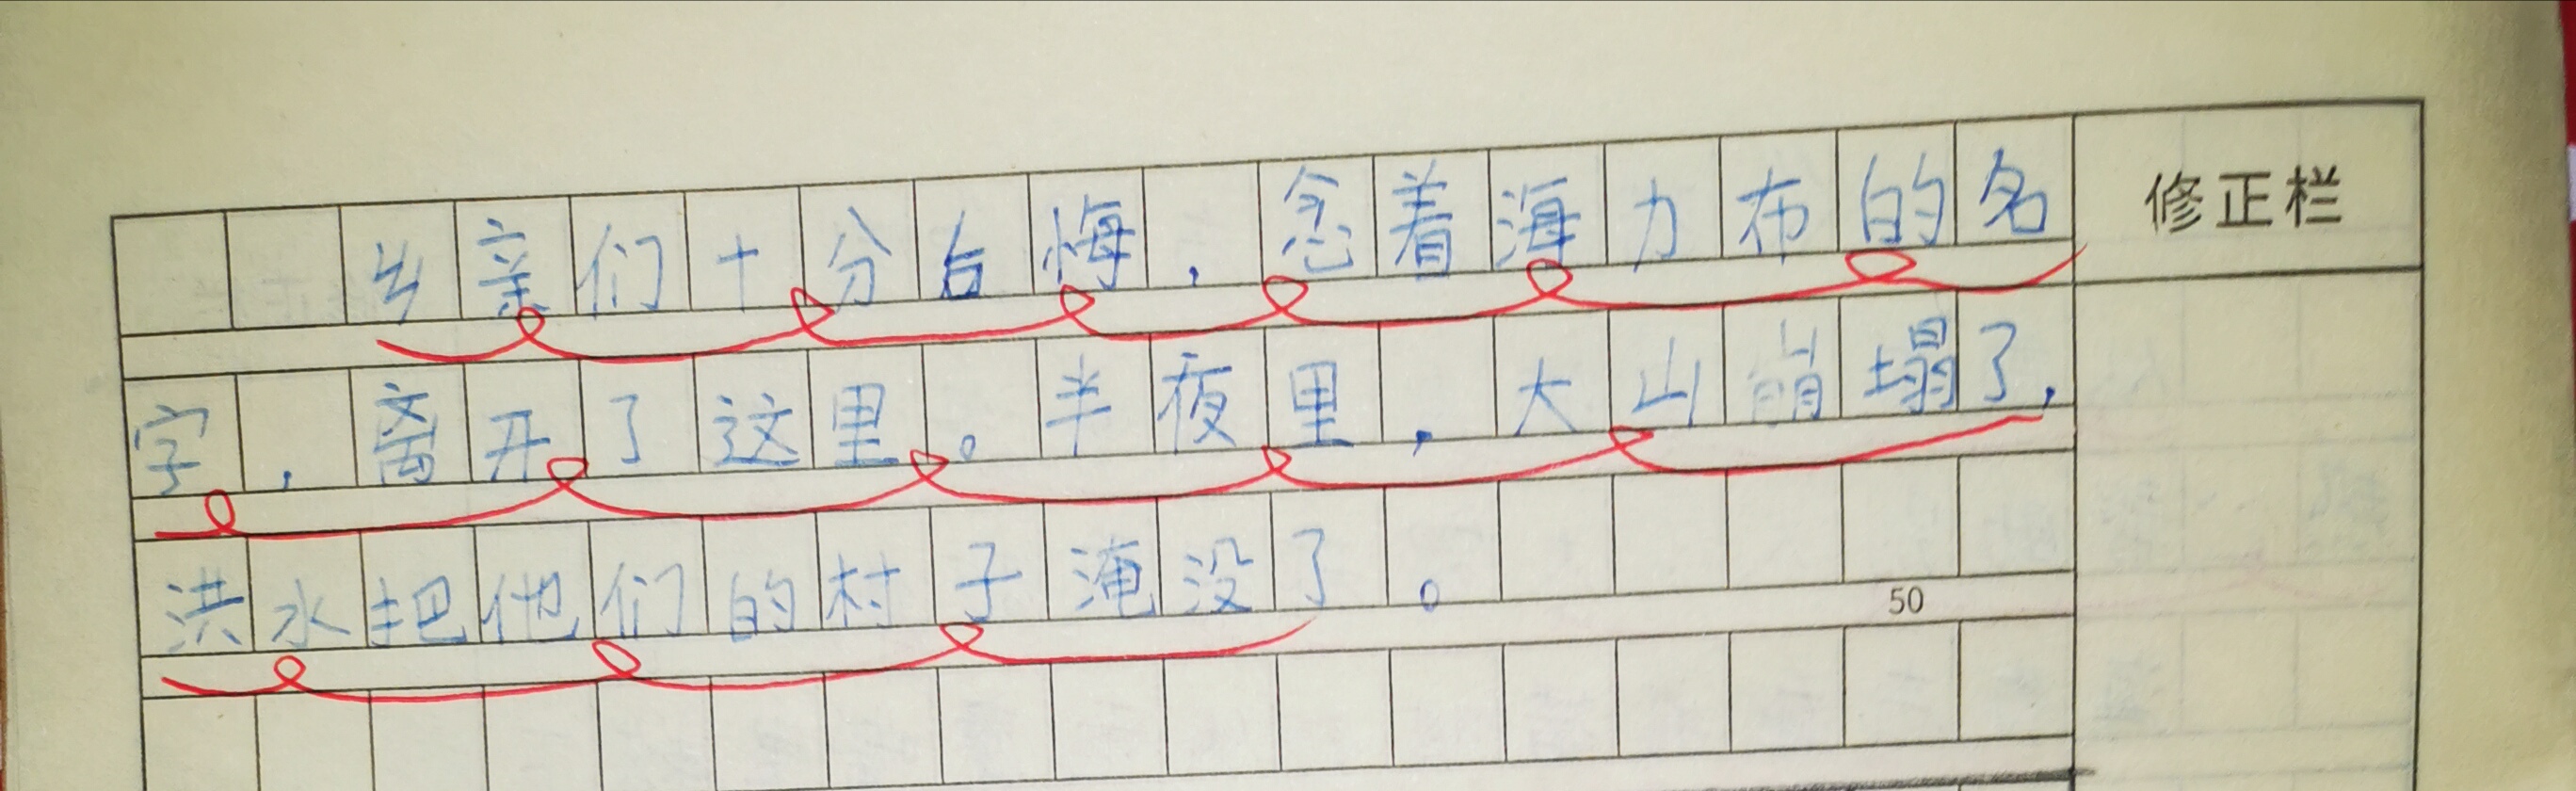 乡亲们十分后悔，念着海力布的名
修正栏
字，离开了这里。半夜里，大山崩塌了，
洪水把他们的村子淹没了。
50